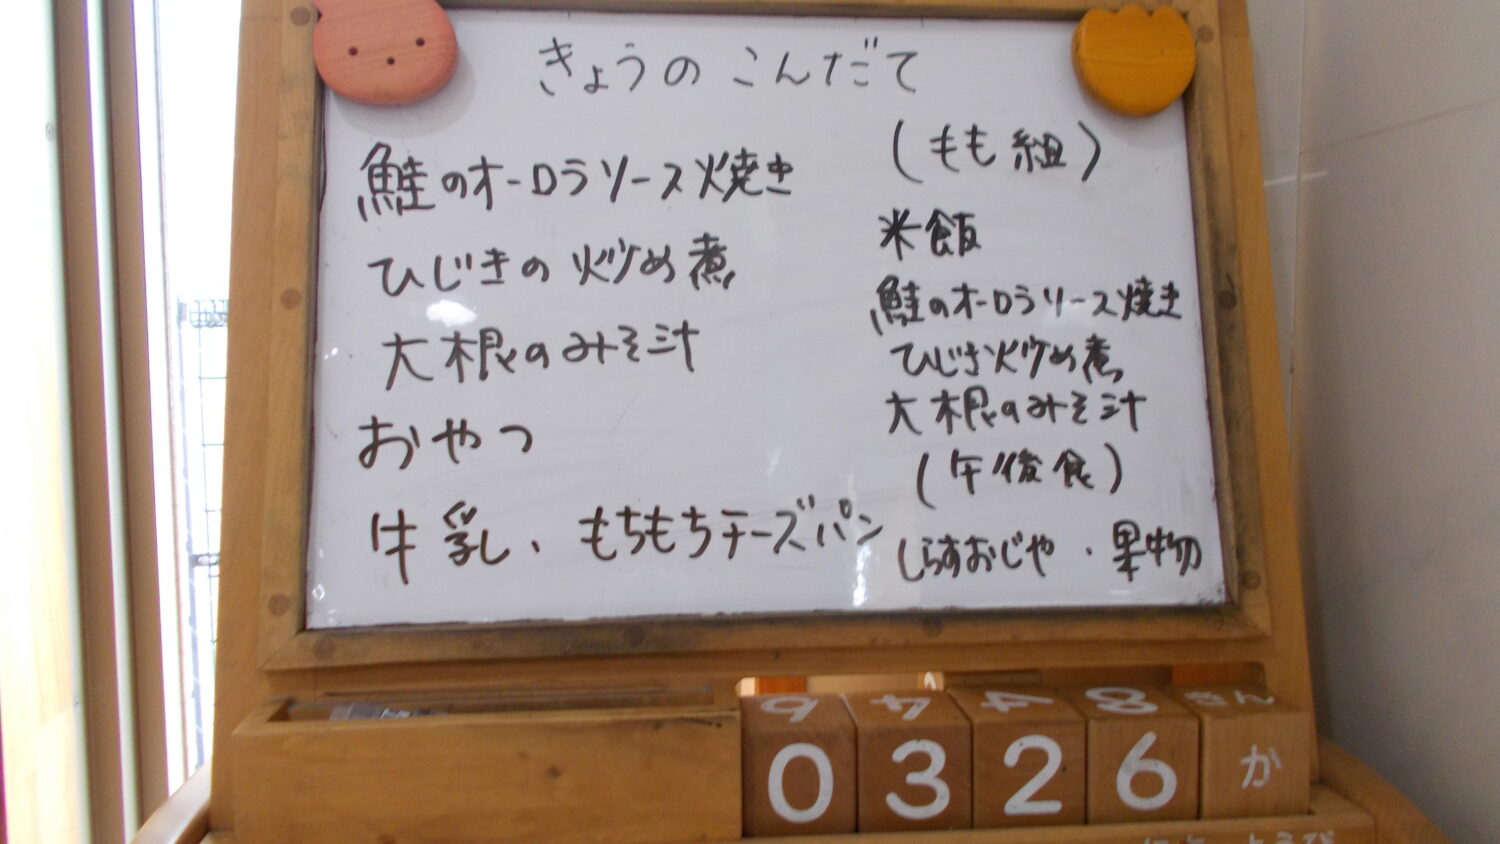 きょうの こんだて
鮭のオーロラソース焼き
ひじきの炒め煮
大根のみそ汁
おやつ
牛乳、もちもちチーズパン
(もも組)
米飯
鮭のオーロラソース焼き
ひじき炒め煮
大根のみそ汁
(午後食)
しらすおじや・果物
6 4 4 8 きん
0 3 2 6 か
ようび